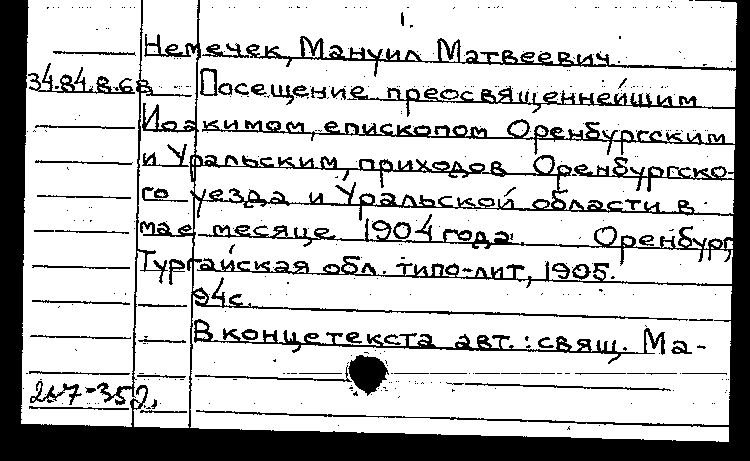 1.
Немечек, Мануил Матвеевич
34.84.8.68 Посещение преосвященнейшим
Иоакимом, епископом Оренбургским
и Уральским, приходов Оренбургско-
го уезда и Уральской области в
мае месяце 1904 года. Оренбург,
Тургайская обл. типо-лит, 1905.
94с.
В конце текста авт.: свящ. Ма-
267-352,